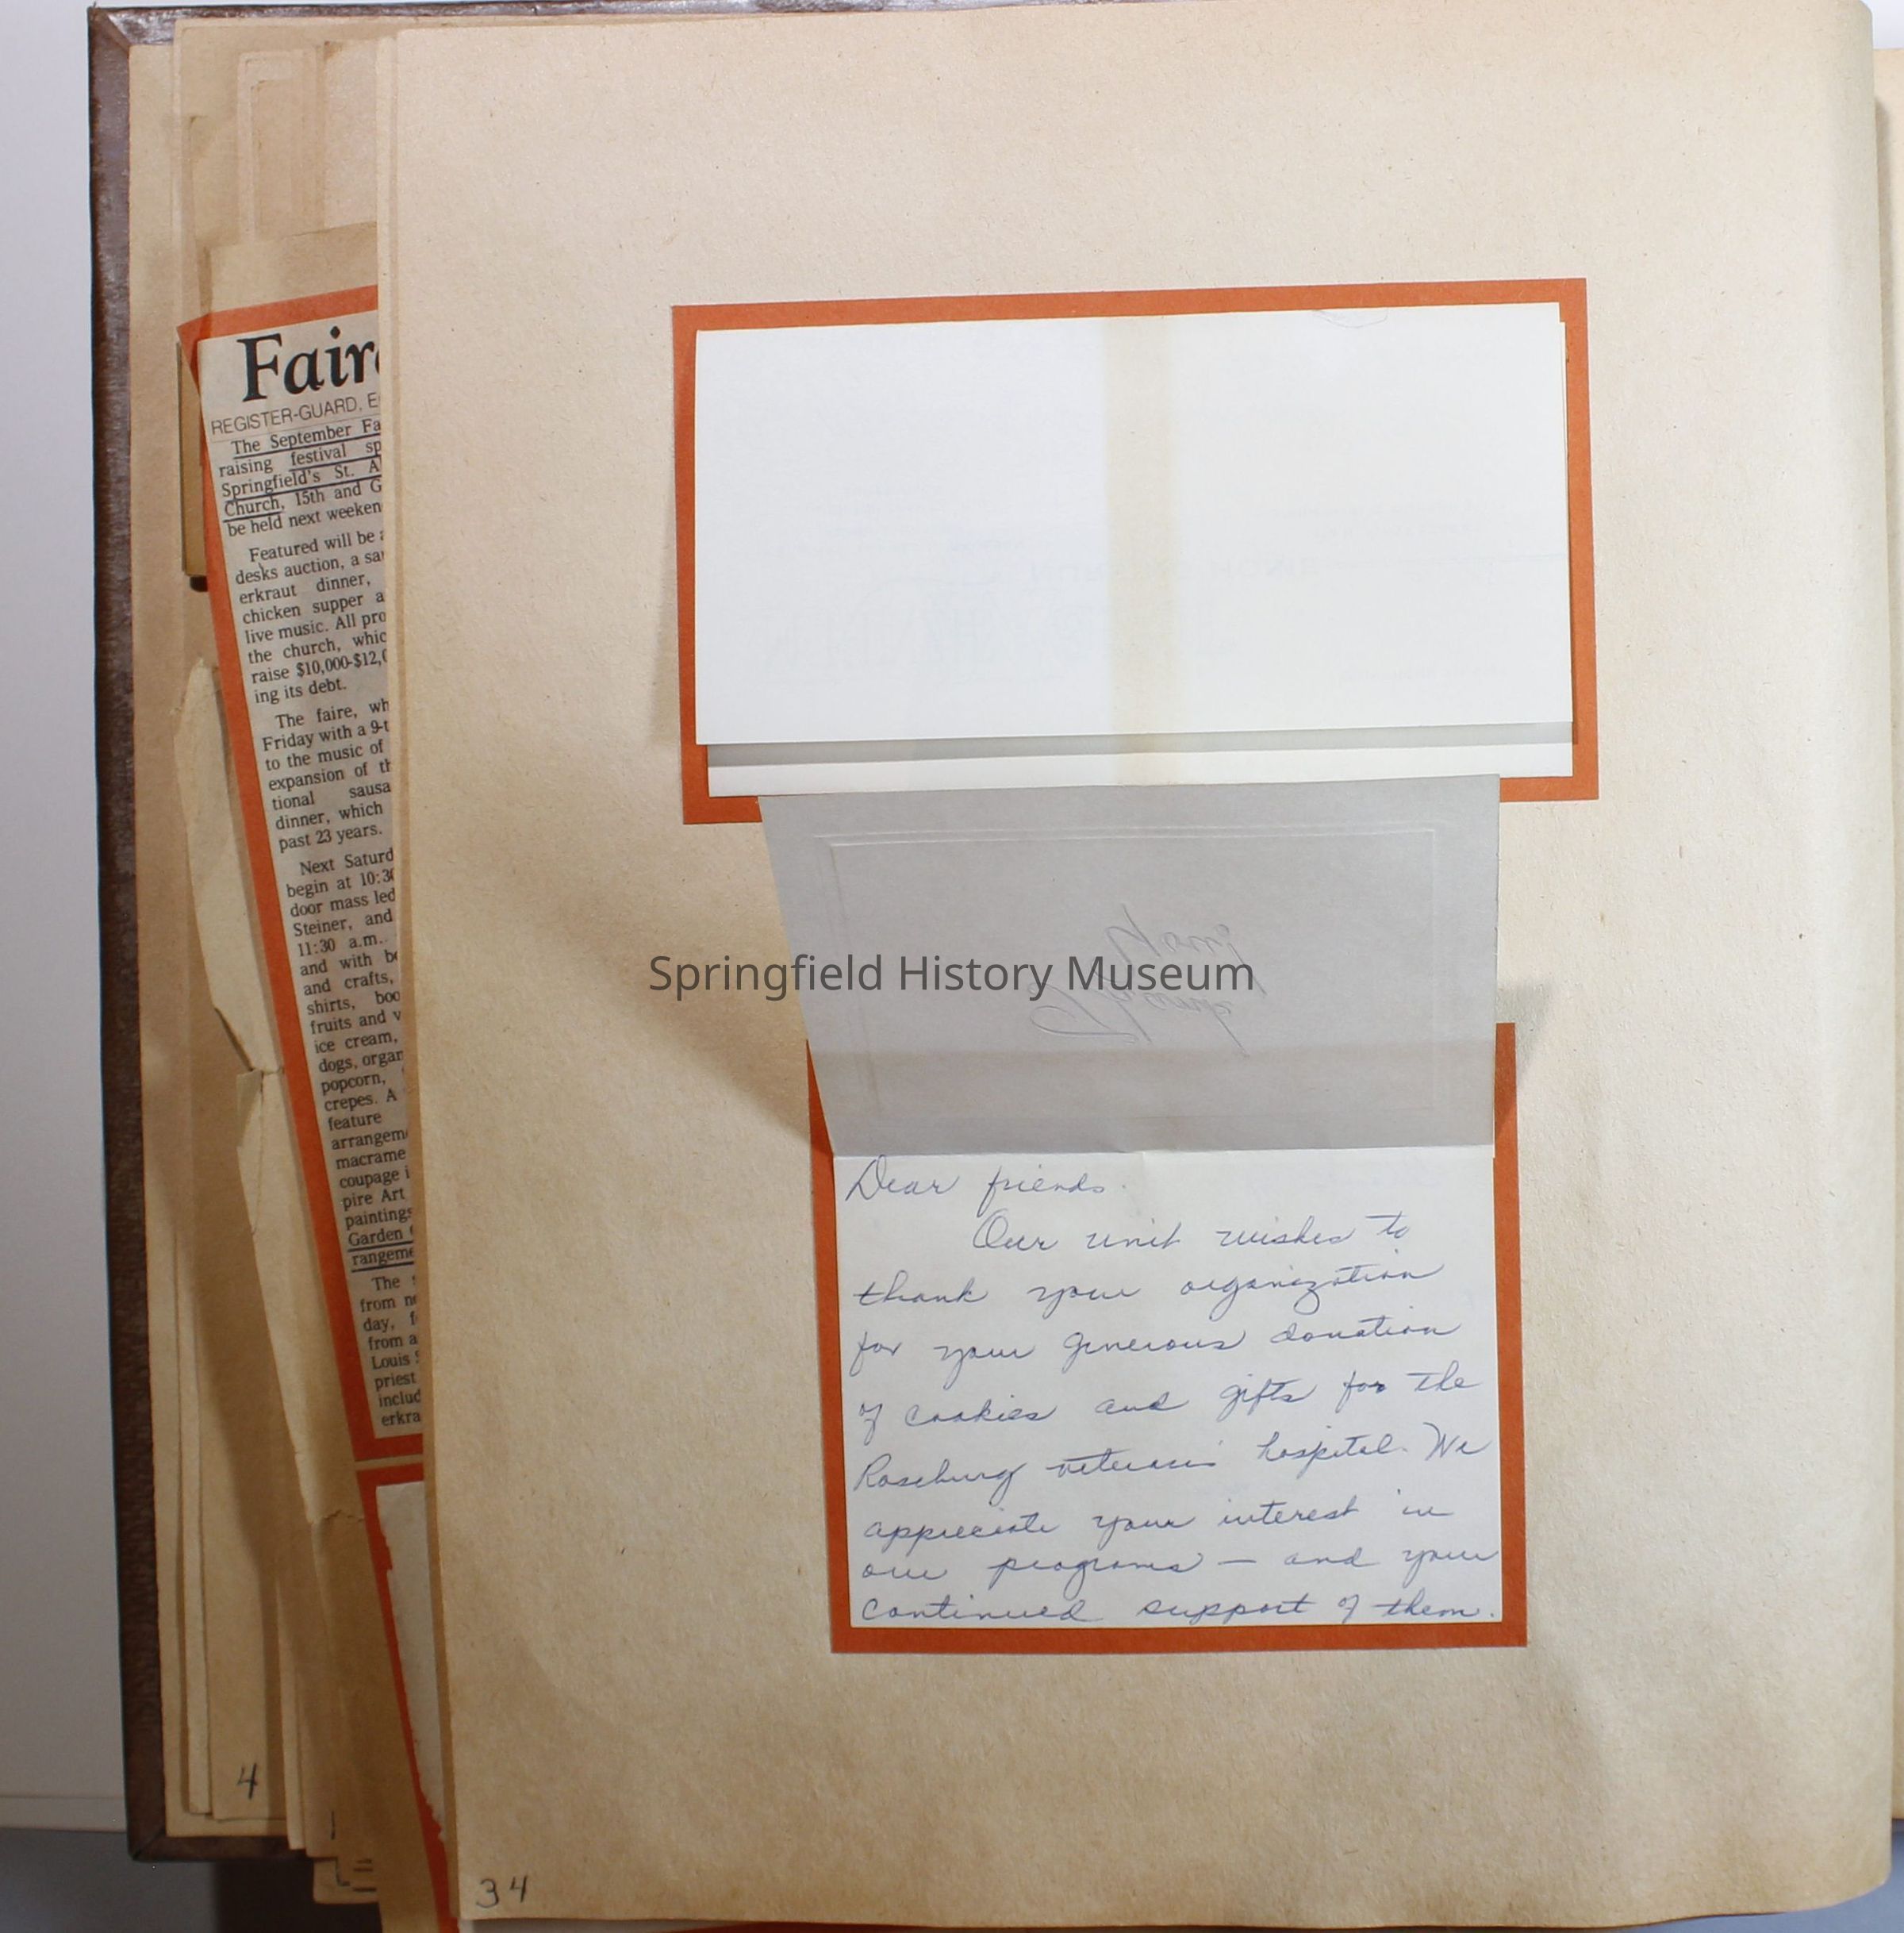 Fair
REGISTER-GUARD, E
The September Fa
raising festival sp
Springfield's St. A
Church, 15th and G
be held next weeken
Featured will be a
desks auction, a sa
erkraut dinner,
chicken supper a
live music. All pro
the church, whic
raise $10,000-$12,0
ing its debt.
The faire, wh
Friday with a 9-t
to the music of
expansion of th
tional sausa
dinner, which
past 23 years.
Next Saturd
begin at 10:30
door mass led
Steiner, and
11:30 a.m.
and with be
and crafts,
shirts, boo
fruits and v
ice cream,
dogs, organ
popcorn,
crepes. A
feature
arrangem
macrame
coupage i
pire Art
paintings
Garden
rangeme
The s
from no
day, f
from a
Louis S
priest
includ
erkra
4
Thank You
Springfield History Museum
Dear friends.
Our unit wishes to
thank your organization
for your generous donation
of cookies and gifts for the
Roseburg veterans hospital. We
appreciate your interest in
our programs — and your
continued support of them.
34